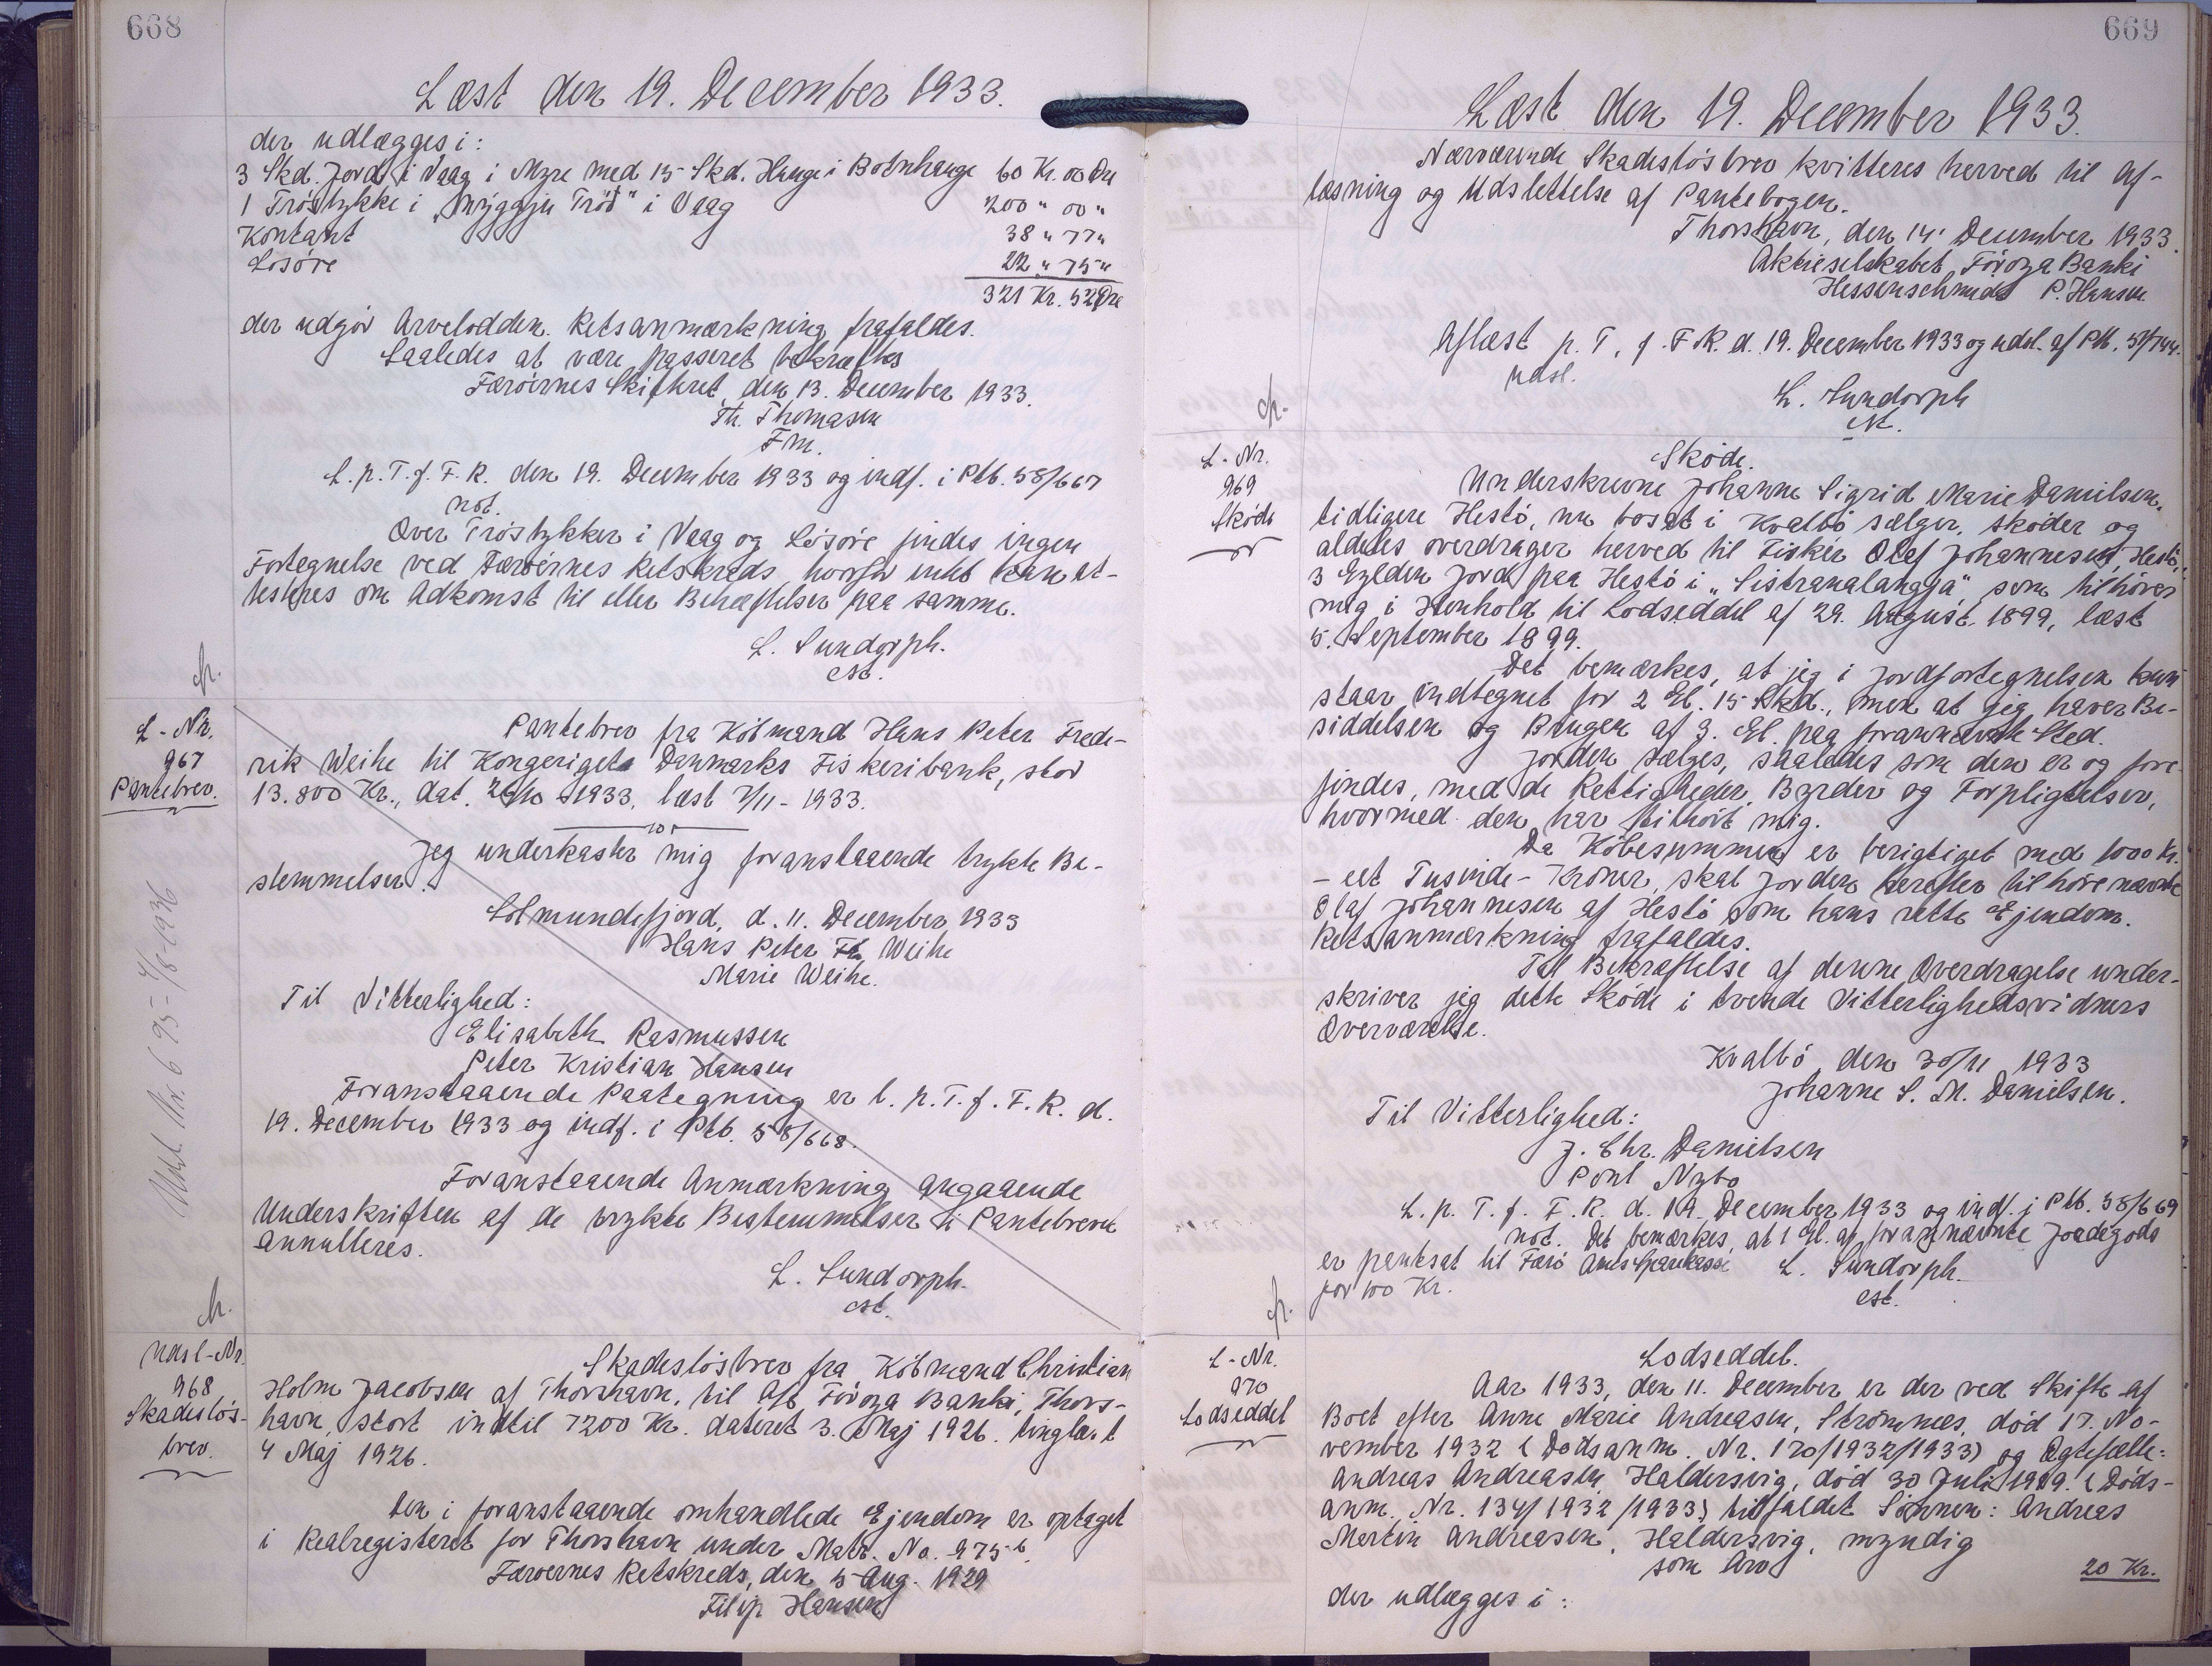 668
Læst den 19. December 1933.
der udlægges i:
3 Skd. Jord i Vaag i Myre med 15 Skd. Hauge i Botnhauge 60 Kr. 00 Øre
1 Tröstykke i "Nýggju Tröð" i Vaag 200 " 00 "
Kontant 38 " 77 "
Lösöre 22 " 75 "
321 Kr. 52 Øre
der udgör Arvelodden. Retsanmærkning frafaldes.
Saaledes at være passeret bekræftes
Færöernes Skifteret, den 13. December 1933.
Th. Thomasen
Fm.
L. p. T. f. F. R. den 19. December 1933 og indf. i Ptb. 58/667
not.
Over Tröstykker i Vaag og Lösöre findes ingen
Fortegnelse ved Færöernes Retskreds, hvorfor intet kan at-
testeres om Adkomst til eller Behæftelser paa samme.
L. Sundorph.
cst.
L-Nr.
967
Pantebrev.
Pantebrev fra Köbmand Hans Peter Frede-
rik Weihe til Kongeriget Danmarks Fiskeribank, stor
13.800 Kr., dat. 26/10 1933, læst 7/11-1933.
Jeg underkaster mig foranstaaende trykte Be-
stemmelser.
Solmundefjord, d. 11. December 1933
Hans Peter Fr. Weihe
Marie Weihe.
Til Vitterlighed:
Elisabeth Rasmussen
Peter Kristian Hansen
Foranstaaende Paategning er l. p. T. f. F. R. d.
19. December 1933 og indf. i Ptb. 58/668.
Foranstaaende Anmærkning angaaende
Underskriften af de trykte Bestemmelser i Pantebrevet
annulleres.
L. Sundorph.
cst.
Udsl-Nr.
968
Skadeslös-
brev.
Skadeslösbrev fra Köbmand Christian
Holm Jacobsen af Thorshavn, til A/S Föroya Banki, Thors-
havn, stort indtil 7200 Kr. dateret 3. Maj 1926. tinglæst
4 Maj 1926.
Den i foranstaaende omhandlede Ejendom er optaget
i Realregisteret for Thorshavn under Matr. No. 975 b.
Færøernes Retskreds, den 5 Aug. 1929
Filip Hansen
669
Læst den 19. December 1933.
Nærværende Skadeslösbrev kvitteres herved til Af-
læsning og Udslettelse af Pantebogen.
Thorshavn, den 14. December 1933.
Aktieselskabet Föroya Banki
Hessenschmidt P. Hansen
Aflæst p. T. f. F. R. d. 19. December 1933 og udsl. af Ptb. 51/744.
udsl.
L. Sundorph
cst.
L-Nr.
969
Sköde
Sköde.
Underskrevne Johanne Sigrid Marie Danielsen,
tidligere Hestö, nu bosat i Kvalbö sælger, sköder og
aldeles overdrager herved til Fisker Olaf Johannesen, Hestö,
3 Gylden Jord paa Hestö i "Sistranalanggja", som tilhörer
mig i Henhold til Lodseddel af 29. August 1899, læst
5. September 1899.
Det bemærkes, at jeg i Jordfortegnelsen kun
staar indtegnet for 2 Gl. 15 Skd., men at jeg haver Be-
siddelsen og Brugen af 3. Gl. paa forannævnte Sted.
Jorden sælges, saaledes som den er og fore-
findes, med de Rettigheder, Byrder og Forpligtelser,
hvormed den har tilhört mig.
Da Köbesummen er berigtiget med 1000 Kr.
- eet Tusinde - Kroner, skal Jorden herefter tilhöre nævnte
Olaf Johannesen af Hestö som hans rette Ejendom.
Retsanmærkning frafaldes.
Til Bekræftelse af denne Overdragelse under-
skriver jeg dette Sköde i tvende Vitterlighedsvidners
Overværelse.
Kvalbö den 30/11 1933
Johanne S. M. Danielsen.
Til Vitterlighed:
J. Chr. Danielsen
Poul Nybo
L. p. T. f. F. R. d. 19. December 1933 og indf. i Ptb. 58/669
not. Det bemærkes, at 1 Gl. af forannævnte Jordegods
er pantsat til Færö Amts Sparekasse
for 100 Kr.
L. Sundorph.
cst.
L-Nr.
970
Lodseddel
Lodseddel.
Aar 1933, den 11. December er der ved Skifte af
Boet efter Anne Marie Andreasen, Strömnæs, död 17. No-
vember 1932 (Dödsanm. Nr. 120/1932/1933) og Ægtefælle:
Andreas Andreasen, Haldersvig, död 30 Juli 1919. (Döds-
anm. Nr. 134/1932/1933) tilfaldet Sönnen: Andreas
Martin Andreasen, Haldersvig, myndig
som Arv 20 Kr.
der udlægges i: